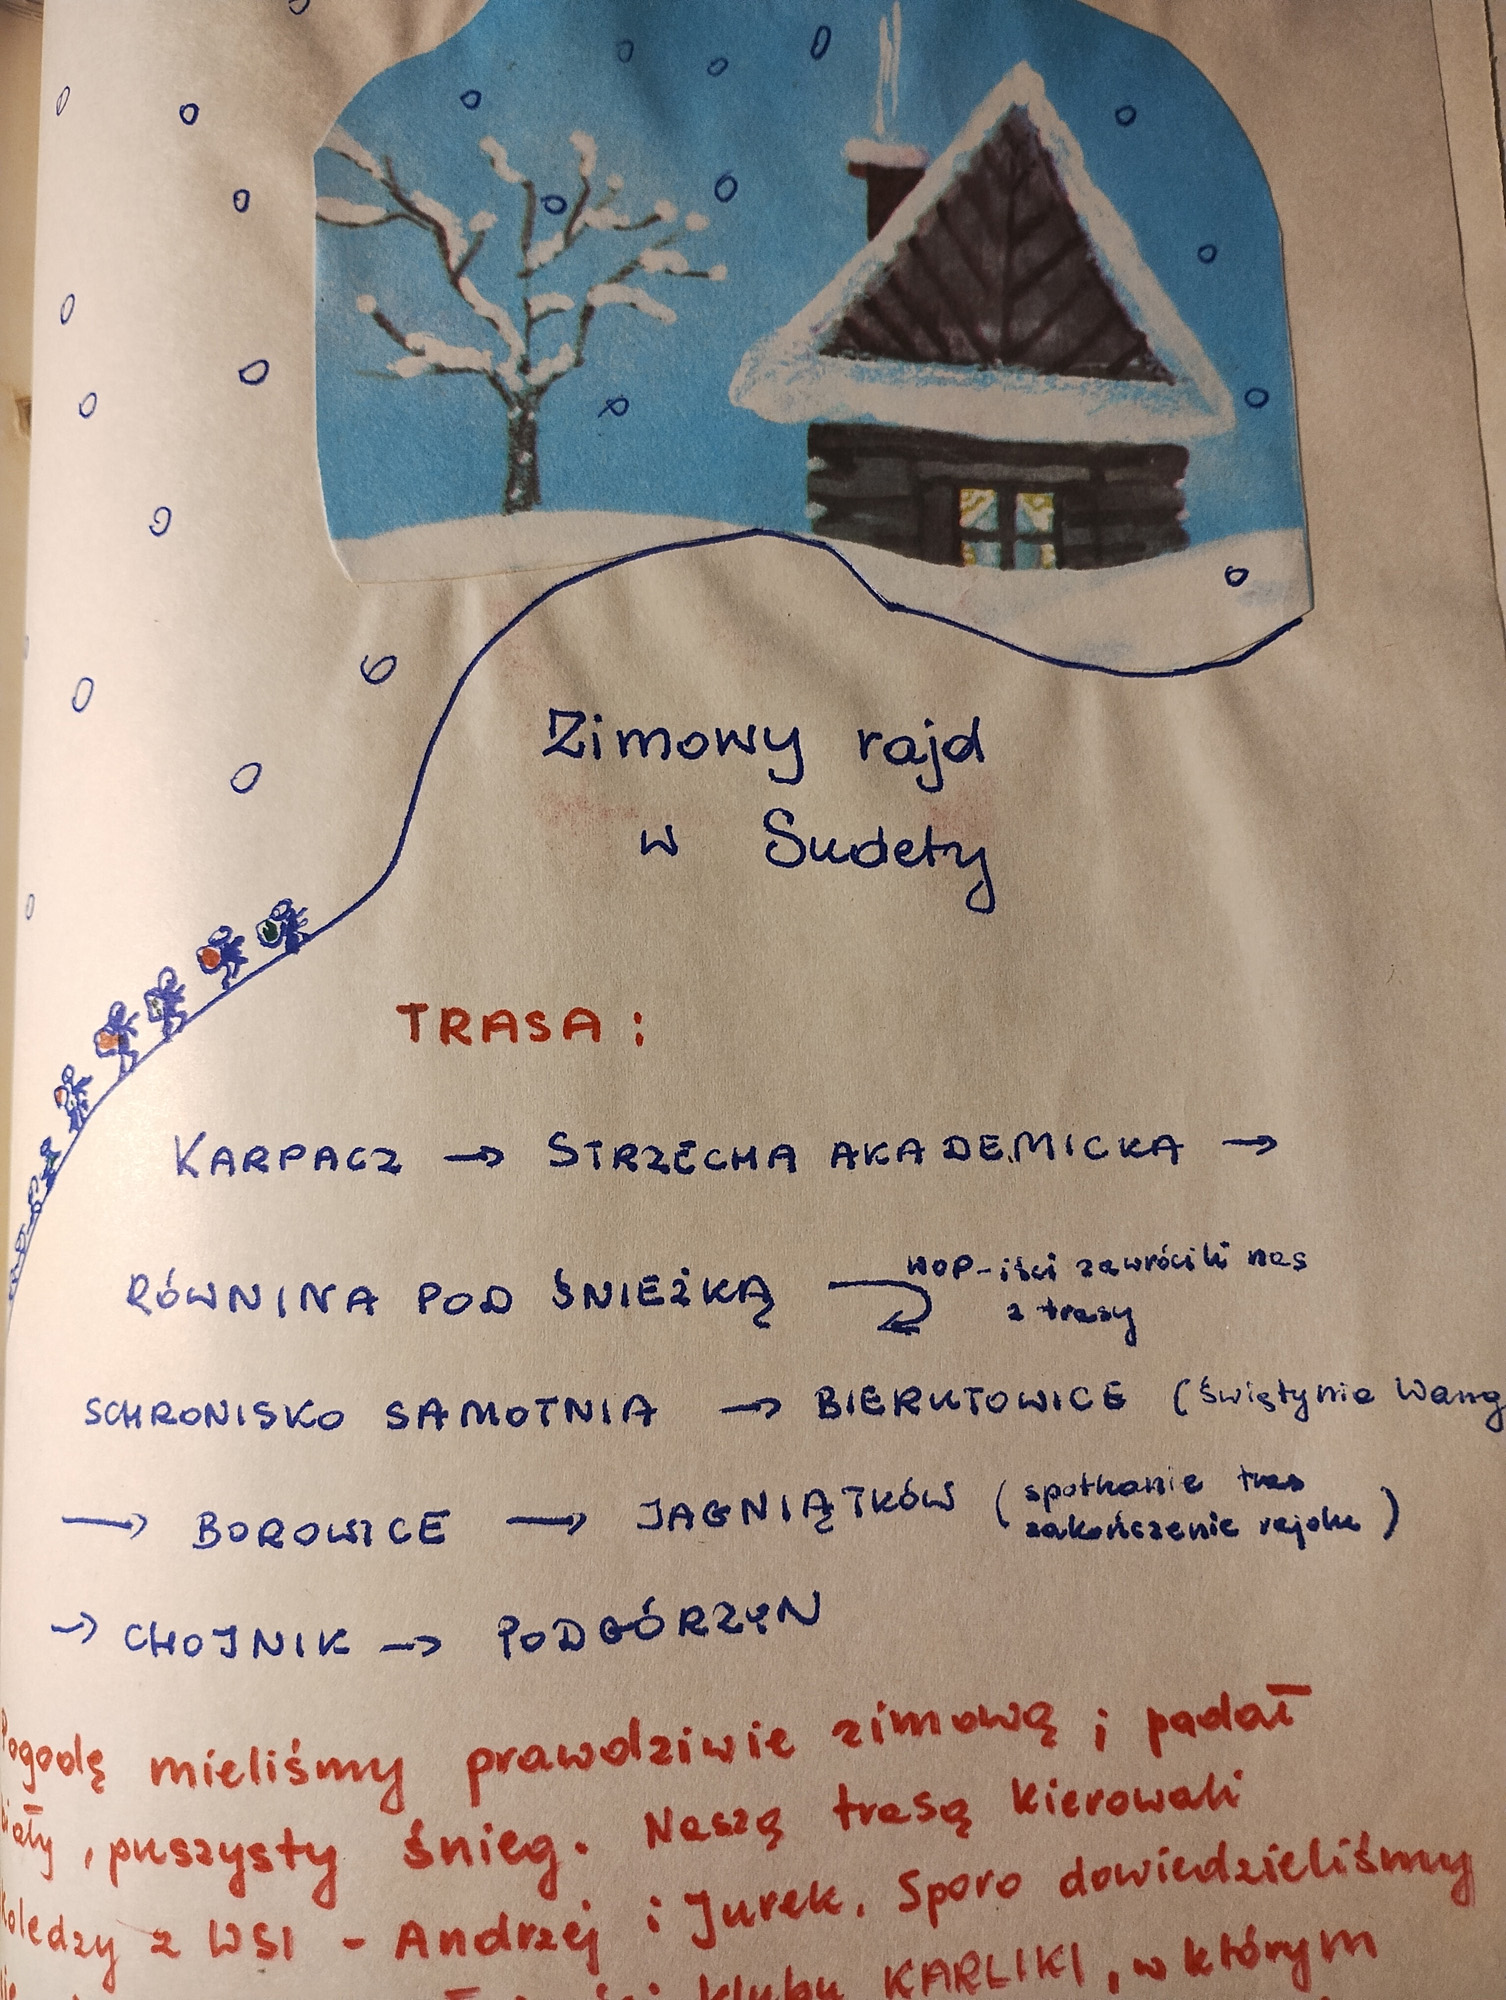 Zimowy rajd
w Sudety
TRASA:
KARPACZ → STRZECHA AKADEMICKA →
RÓWNINA POD ŚNIEŻKĄ
WOP-iści zawrócili nas
z trasy
SCHRONISKO SAMOTNIA → BIERUTOWICE (świątynia Wang
→ BOROWICE → JAGNIĄTKÓW (spotkanie tras
zakończenie rajdu)
→ CHOJNIK → PODGÓRZYN
Pogodę mieliśmy prawdziwie zimową i padał
biały, puszysty śnieg. Naszą trasą kierowali
Koledzy z WSI - Andrzej i Jurek. Sporo dowiedzieliśmy
klubu KARLIKI, w którym